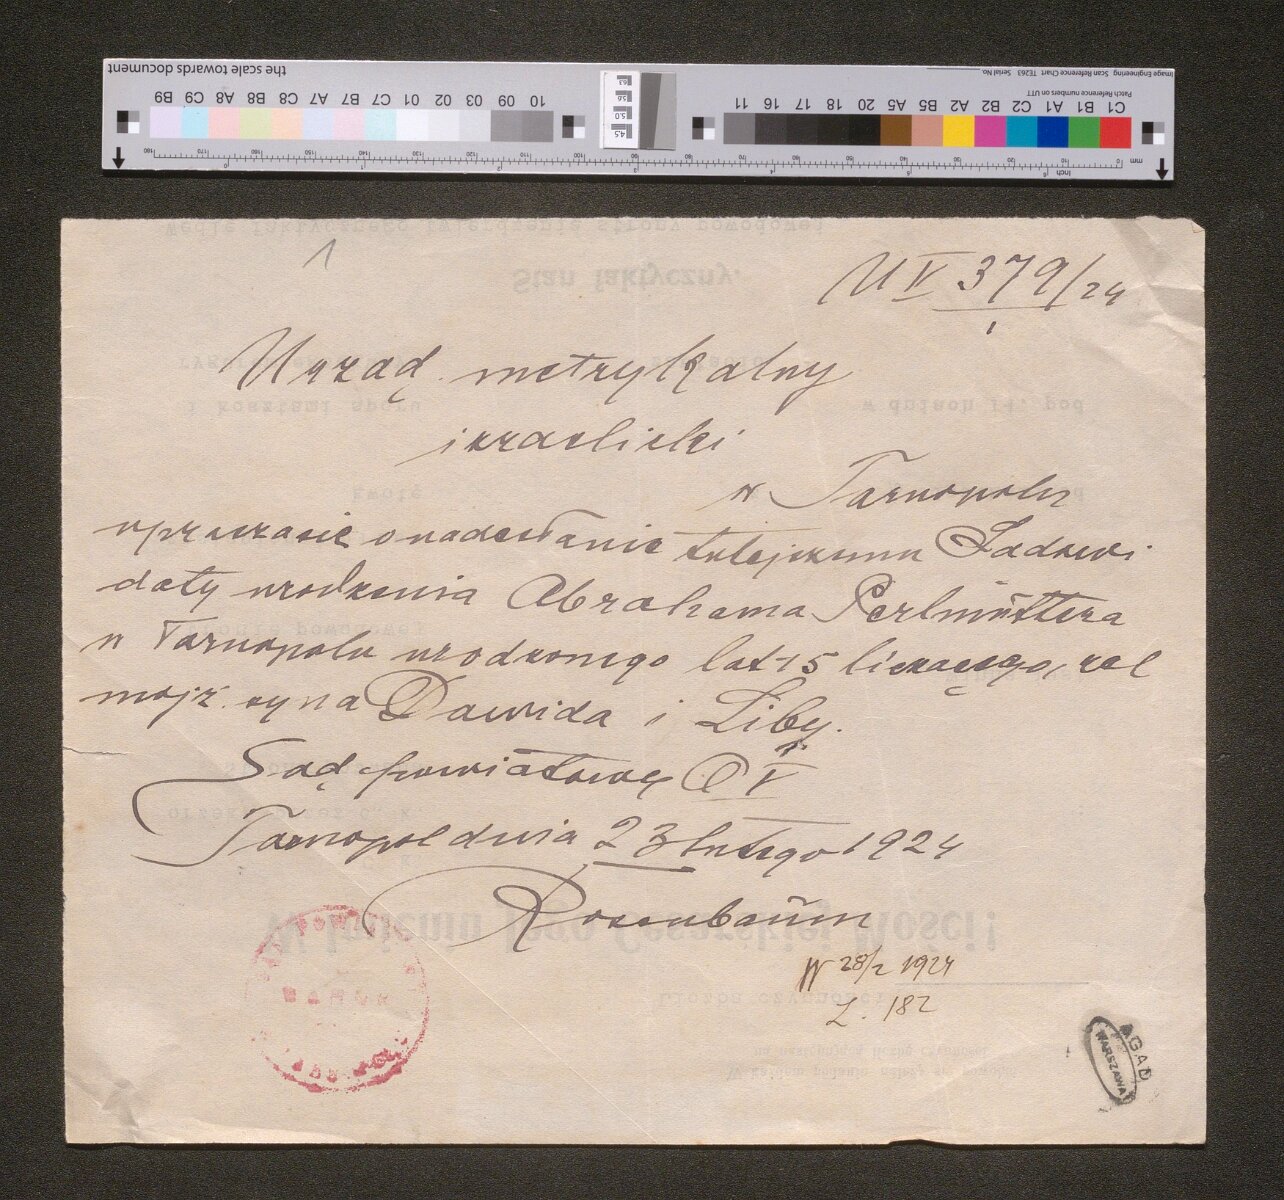 the scale towards document
Image Engineering Scan Reference Chart TE263 Serial No.
Patch Reference numbers on UTT
C1 B1 A1 C2 B2 A2 B5 A5 20 18 17 16 11
10 09 03 02 01 C7 B7 A7 C8 B8 A8 C9 B9
1
U V 379/24
1
Urząd metrykalny
izraelicki
w Tarnopolu
uprasza się o nadesłanie tutejszemu Sądowi
daty urodzenia Abrahama Perlmüttera
w Tarnopolu urodzonego lat 15 liczącego, rel
mojż. syna Dawida i Liby.
Sąd powiatowy O V
Tarnopol dnia 23 lutego 1924
Rosenbaum
W 28/2 1924
L. 182
AGAD
WARSZAWA